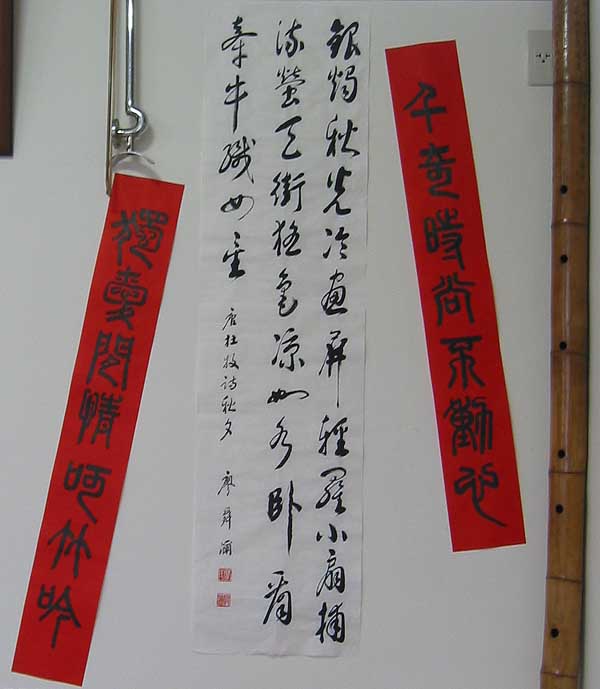 千奇時尚不動心
銀燭秋光冷畫屏輕羅小扇捕
流螢天街夜色凉如水卧看
牽牛織女星 唐杜牧詩秋夕 廖
獨愛閒情呵竹吟